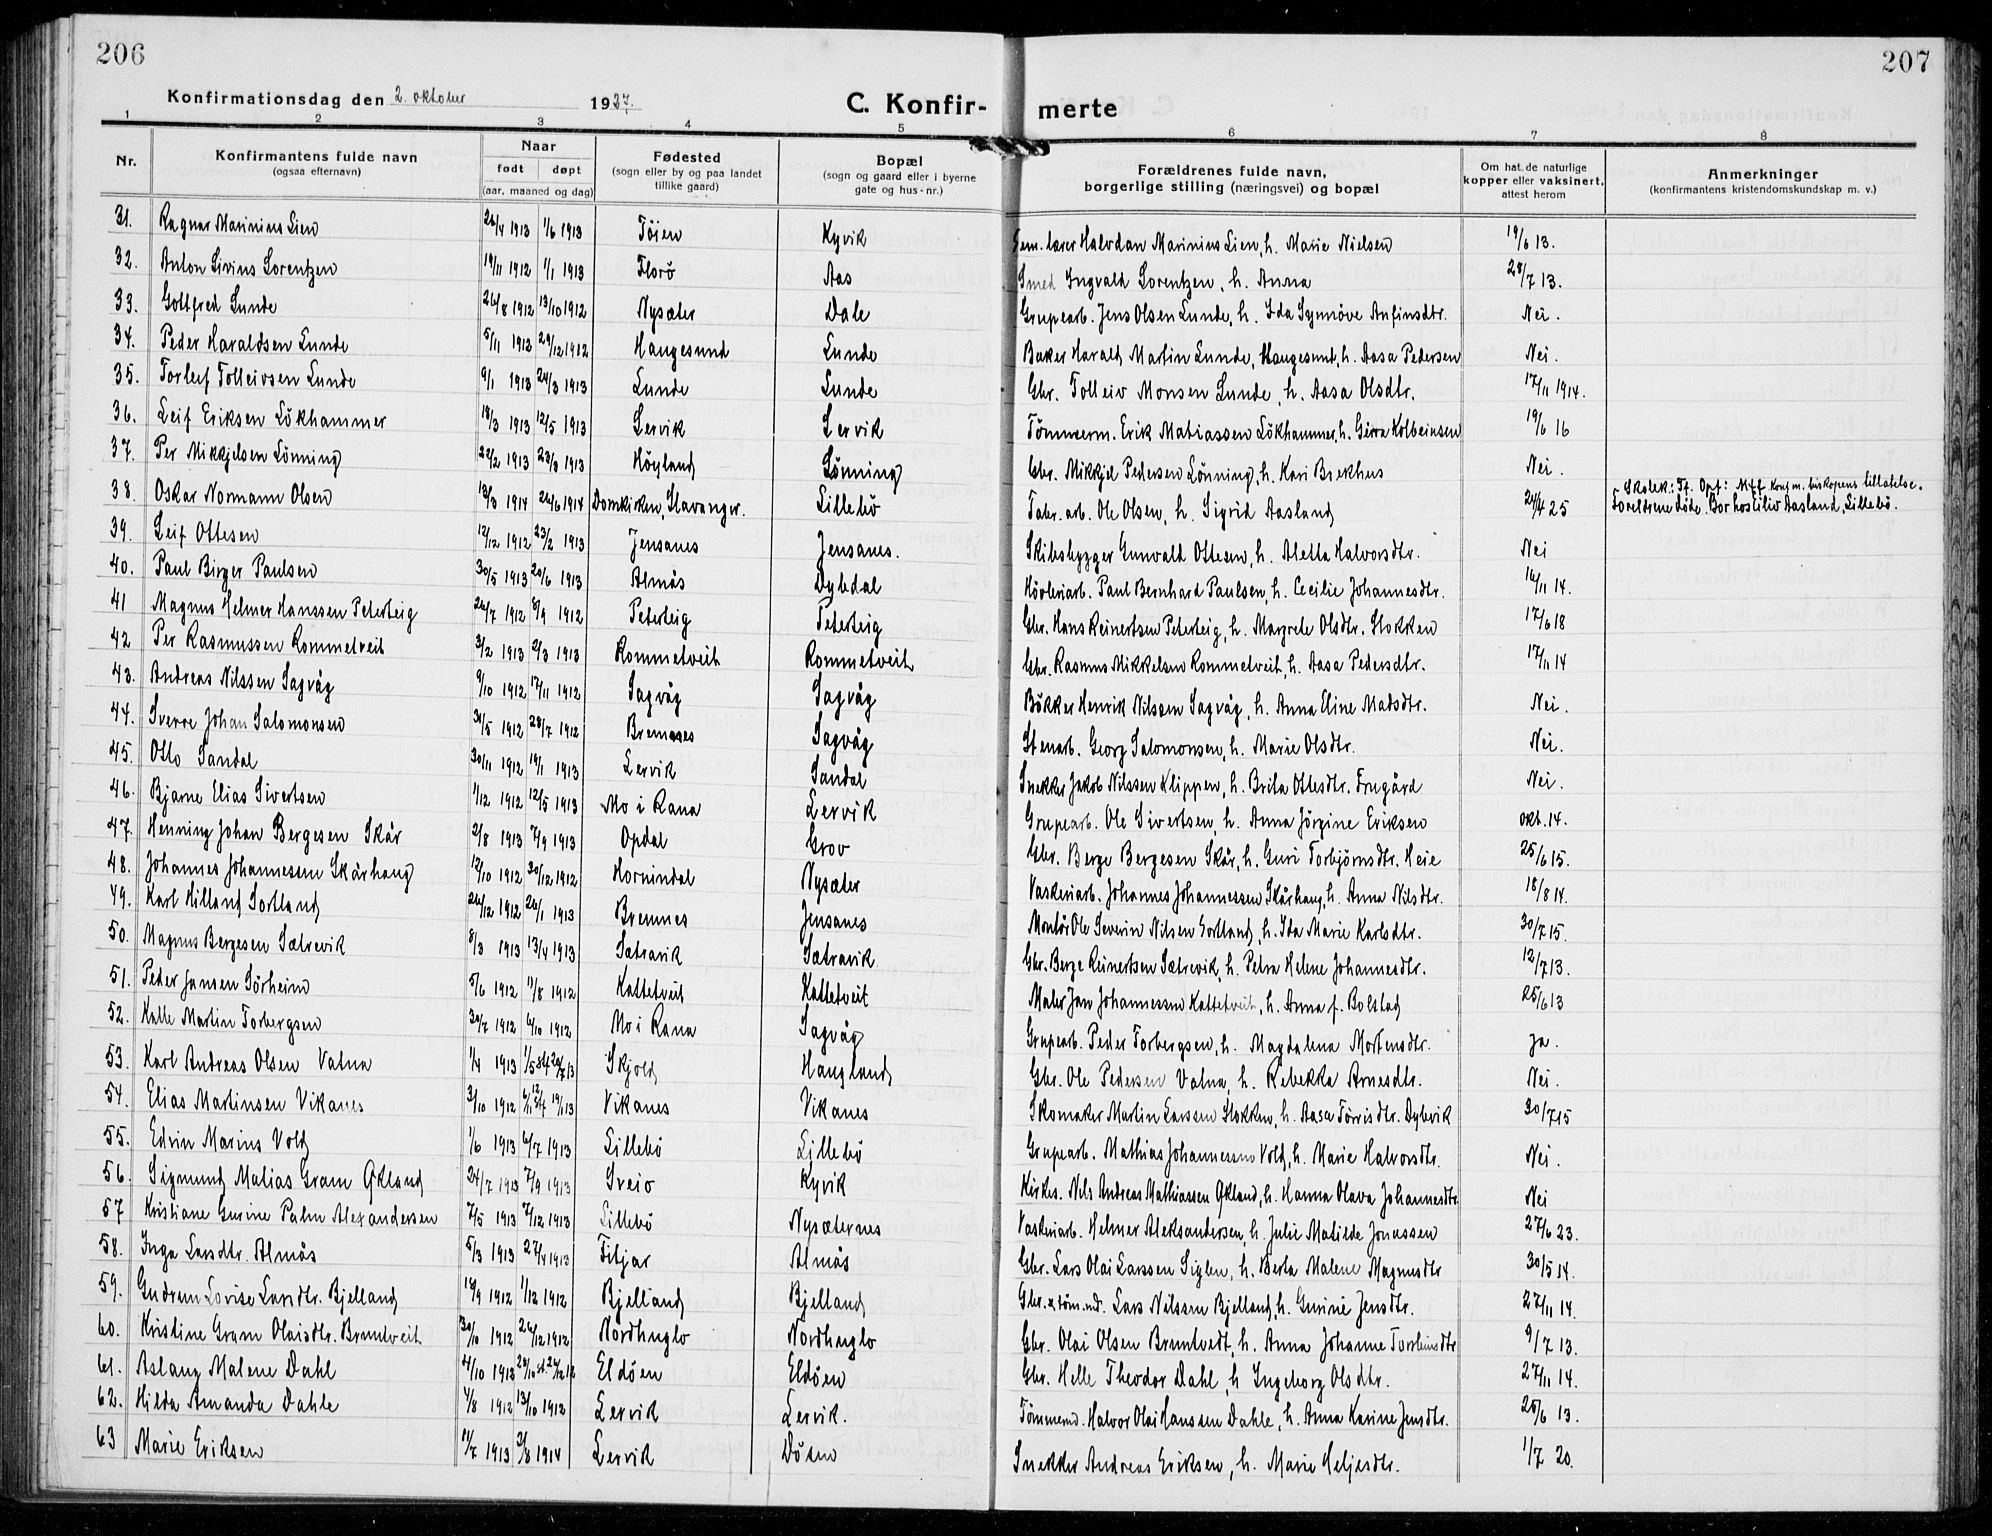 206
207
Konfirmationsdag den 2. oktober 1927.
C. Konfir-
merte
1 2 3 4 5 6 7 8
Nr.
Konfirmantens fulde navn
(ogsaa efternavn)
Naar
født døpt
(aar, maaned og dag)
Fødested
(sogn eller by og paa landet
tillike gaard)
Bopæl
(sogn og gaard eller i byerne
gate og hus-nr.)
Forældrenes fulde navn,
borgerlige stilling (næringsvei) og bopæl
Om hat de naturlige
kopper eller vaksinert,
attest herom
Anmerkninger
(konfirmantens kristendomskundskap m. v.)
31. Ragnar Marinius Lien 26/4 1913 1/6 1913 Töien Kyvik Sem. lærer Halvdan Marinius Lien, h. Marie Nielsen 19/6 13.
32. Anton Livius Lorentzen 19/11 1912 1/1 1913 Florö Aas Smed Ingvald Lorentzen, h. Anna 28/7 13.
33. Gottfred Lunde 26/8 1912 13/10 1912 Nysæter Dale Grupearb. Jens Olsen Lunde, h. Ida Synnöve Anfinsdtr. Nei.
34. Peder Haraldsen Lunde 5/11 1912 29/12 1912 Haugesund Lunde Baker Harald Martin Lunde, Haugesund, h. Aasa Pedersen Nei.
35. Torleif Tolleivsen Lunde 9/1 1913 24/3 1913 Lunde Lunde Gbr. Tolleiv Monsen Lunde, h. Aasa Olsdtr. 17/11 1914.
36. Leif Eriksen Lökhammer 18/3 1913 12/5 1913 Lervik Lervik Tömmerm. Erik Matiassen Lökhammer, h. Gjrra Kolbeinsen 19/6 16
37. Per Mikkjelsen Lönning 22/2 1913 23/3 1913 Höyland Lönning Gbr. Mikkjel Pedersen Lönning, h. Kari Brekhus Nei.
38. Oskar Normann Olsen 13/3 1914 26/6 1914 Domkirken, Stavanger. Lillebö Fabr. arb. Ole Olsen, h. Sigrid Aasland 24/4 25 Skolek: Tf. Opf: Mtf Konf m. biskopens tillatelse.
Foreldrene döde. Bor hos Liliv Aasland, Lillebö.
39. Leif Ottesen 12/12 1912 23/2 1913 Jensanes Jensanes. Skibsbygger Gunvald Ottesen, h. Aletta Halvorsdtr. Nei
40. Paul Birger Paulsen 30/5 1913 20/6 1913 Almås Dybdal Hövleriarb. Paul Bernhard Paulsen, h. Cecilie Johannesdtr. 16/11 14.
41 Magnus Helmer Hanssen Peterteig 26/7 1912 8/9 1912 Peterteig Peterteig Gbr. Hans Reinertsen Peterteig, h. Margrete Olsdtr. Stokken 17/6 18
42 Per Rasmussen Rommetveit 3/2 1913 2/3 1913 Rommetveit Rommetveit Gbr. Rasmus Mikkelsen Rommetveit, h. Aasa Pedersdtr. 17/11 14
43. Andreas Nilssen Sagvåg 9/10 1912 17/11 1912 Sagvåg Sagvåg Bökker Henrik Nilssen Sagvåg, h. Anna Eline Madsdtr. Nei.
44. Sverre Johan Salomonsen 31/5 1912 28/7 1912 Bremnes Sagvåg Stenarb. Georg Salomonsen, h. Marie Olsdtr. Nei.
45. Otto Sandal 30/11 1912 19/1 1913 Lervik Sandal Snekker Jakob Nilssen Klippen, h. Brita Ottesdtr. Frugård Nei.
46. Bjarne Elias Sivertsen 1/12 1912 12/5 1913 Mo i Rana Lervik Grupearb. Ole Sivertsen, h. Anna Jörgine Eriksen okt. 14.
47. Henning Johan Bergesen Skår 2/8 1913 7/9 1913 Opdal Grov Gbr. Berge Bergesen Skår, h. Guri Torbjörnsdtr. Heie 25/6 15.
48. Johannes Johannessen Skårhaug 12/10 1912 30/12 1912 Hornindal Nysæter Vaskeriarb. Johannes Johannessen Skårhaug, h. Anna Nilsdtr. 18/8 14.
49. Karl Hilland Sortland 26/12 1912 26/1 1913 Bremnes Jensanes Montör Ole Severin Nilsen Sortland, h. Ida Marie Karlsdtr. 30/7 15.
50. Magnus Bergesen Sætrevik 8/3 1913 13/4 1913 Sætravik Sætravik Gbr. Berge Reinertsen Sætrevik, h. Petra Helene Johannesdtr. 12/7 13.
51. Peder Jansen Sörheim 5/6 1912 11/8 1912 Kattetveit Kattetveit Maler Jan Johannessen Kattetveit, h. Anna f. Bolstad 25/6 13
52. Kalle Martin Torbergsen 30/7 1912 6/10 1912 Mo i Rana Sagvåg Grupearb. Peder Torbergsen, h. Magdalena Mortensdtr. Ja.
53. Karl Andreas Olsen Vatna 1/4 1913 1/5 st 20/7 13 Skjold Haugland Gbr. Ole Pedersen Vatna, h. Rebekka Arnesdtr. Nei.
54. Elias Martinsen Vikanes 3/10 1912 Vikanes Vikanes Skomaker Martin Larssen Stokken, h. Aasa Törrisdtr. Dybvik 30/7 15
55. Edvin Marius Vold 1/6 1913 6/7 1913 Lillebö Lillebö Grupearb. Mathias Johannessen Vold, h. Marie Halvorsdtr. Nei.
56. Sigmund Matias Gram Ökland 24/7 1913 7/9 1913 Sveio Kyvik Kirkes. Nils Andreas Mathiassen Ökland, h. Hanna Olava Johannesdtr Nei
57 Kristiane Gurine Palm Alexandersen 7/5 1913 7/12 1913 Lillebö Nysæternes Vaskeriarb. Helmer Aleksandersen, h. Julie Matilde Jonassen 27/6 23.
58. Inga Larsdtr. Almås 5/3 1913 27/4 1913 Fitjar Almås Gbr. Lars Olai Larssen Siglen, h. Berta Malene Magnusdtr 30/5 14.
59. Gudrun Lovise Larsdtr. Bjelland 18/9 1912 1/12 1912 Bjelland Bjelland Gbr. & töm.md. Lars Nilssen Bjelland, h. Gurine Jensdtr. 27/11 14.
60. Kristine Gram Olaisdtr. Bruntveit 30/10 1912 26/12 1912 Nordhuglo Nordhuglo Gbr. Olai Olsen Bruntvedt, h. Anna Johanne Torsteinsdtr 9/7 13.
61. Aslaug Malene Dahl 4/10 1913 Eldöen Eldöen Gbr. Helle Theodor Dahl, h Ingeborg Olsdtr. 27/11 14.
62. Hilda Amanda Dahle 4/8 1912 13/10 1912 Lervik Lervik. Tömmermd. Halvor Olai Hanssen Dahle, h. Anna Karine Jensdtr. 25/6 13.
63 Marie Eriksen 11/7 1913 3/8 1914 Lervik Dösen Snekker Andreas Eriksen, h. Marie Heljesdtr. 1/7 20.